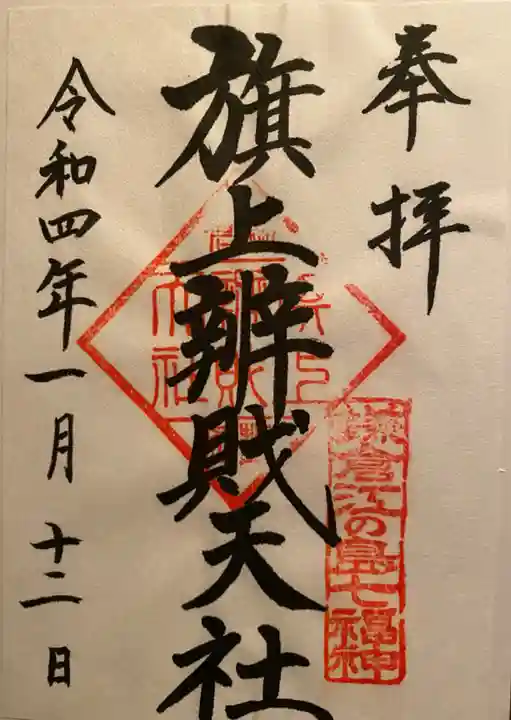 奉拝
鎌倉江の島七福神
旗上辨財天社
令和四年一月十二日